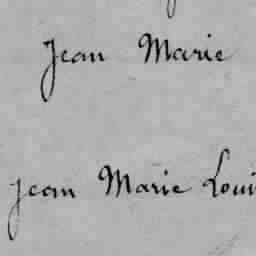 Jean Marie
Jean Marie Loui